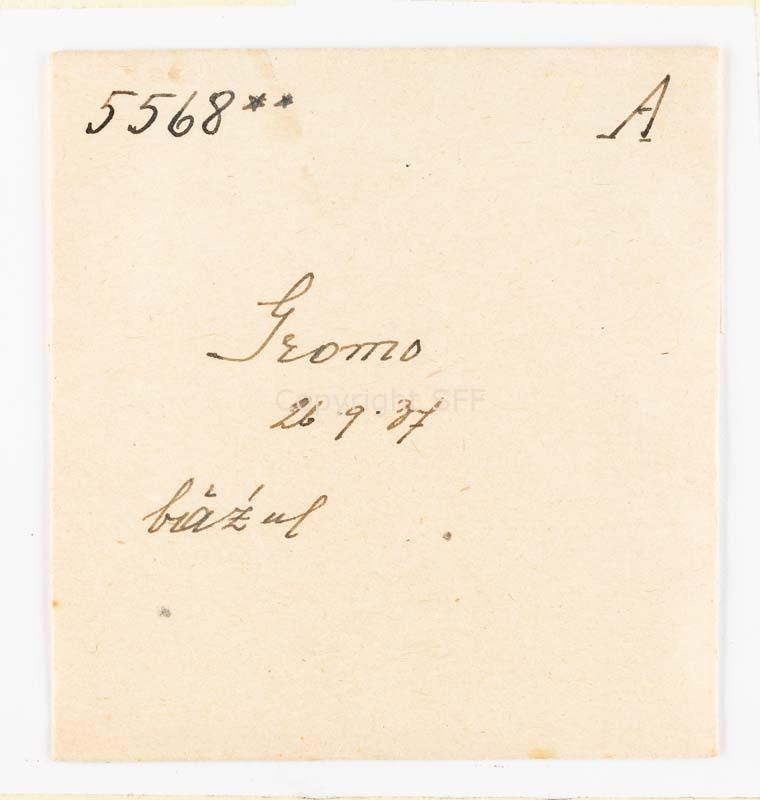 5568** A
Gromo
Copyright SFF
26.9.37